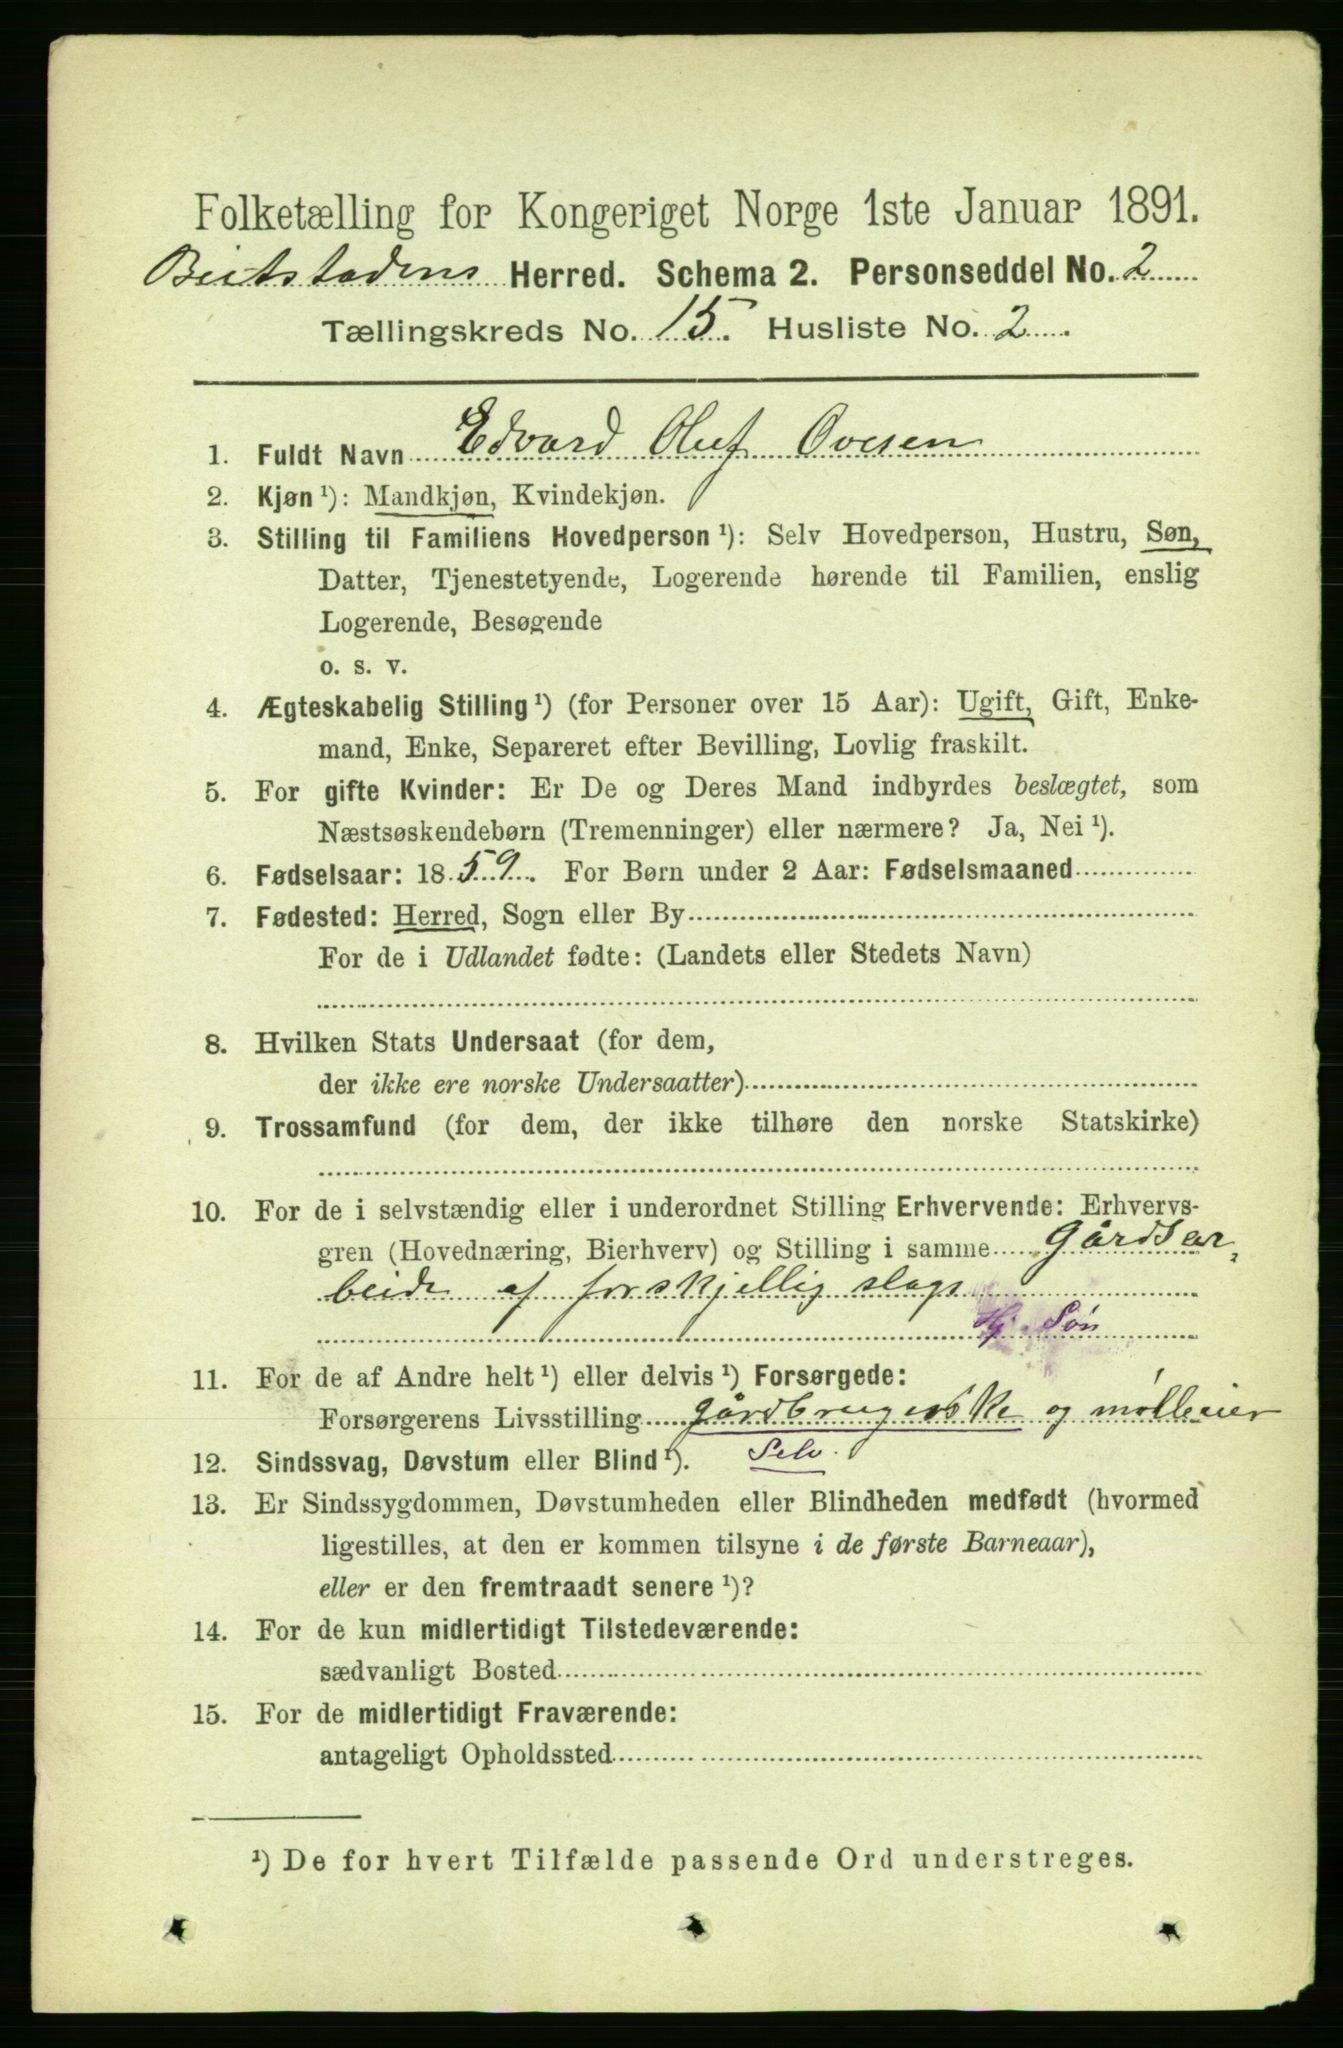 Folketælling for Kongeriget Norge 1ste Januar 1891.
Beitstadens Herred. Schema 2. Personseddel No. 2
Tællingskreds No. 15. Husliste No. 2.
1. Fuldt Navn Edvard Oluf Ovesen
2. Kjøn ¹): Mandkjøn, Kvindekjøn.
3. Stilling til Familiens Hovedperson ¹): Selv Hovedperson, Hustru, Søn,
Datter, Tjenestetyende, Logerende hørende til Familien, enslig
Logerende, Besøgende
o. s. v.
4. Ægteskabelig Stilling ¹) (for Personer over 15 Aar): Ugift, Gift, Enke-
mand, Enke, Separeret efter Bevilling, Lovlig fraskilt.
5. For gifte Kvinder: Er De og Deres Mand indbyrdes beslægtet, som
Næstsøskendebørn (Tremenninger) eller nærmere? Ja, Nei ¹).
6. Fødselsaar: 1859. For Børn under 2 Aar: Fødselsmaaned
7. Fødested: Herred, Sogn eller By
For de i Udlandet fødte: (Landets eller Stedets Navn)
8. Hvilken Stats Undersaat (for dem,
der ikke ere norske Undersaatter)
9. Trossamfund (for dem, der ikke tilhøre den norske Statskirke)
10. For de i selvstændig eller i underordnet Stilling Erhvervende: Erhvervs-
gren (Hovednæring, Bierhverv) og Stilling i samme Gårdsar-
beide af forskjellig slags
Hj. Søn
11. For de af Andre helt ¹) eller delvis ¹) Forsørgede:
Forsørgerens Livsstilling gårdbrugerske og mølleeier
12. Sindssvag, Døvstum eller Blind ¹). Selv.
13. Er Sindssygdommen, Døvstumheden eller Blindheden medfødt (hvormed
ligestilles, at den er kommen tilsyne i de første Barneaar),
eller er den fremtraadt senere ¹)?
14. For de kun midlertidigt Tilstedeværende:
sædvanligt Bosted
15. For de midlertidigt Fraværende:
antageligt Opholdssted
¹) De for hvert Tilfælde passende Ord understreges.